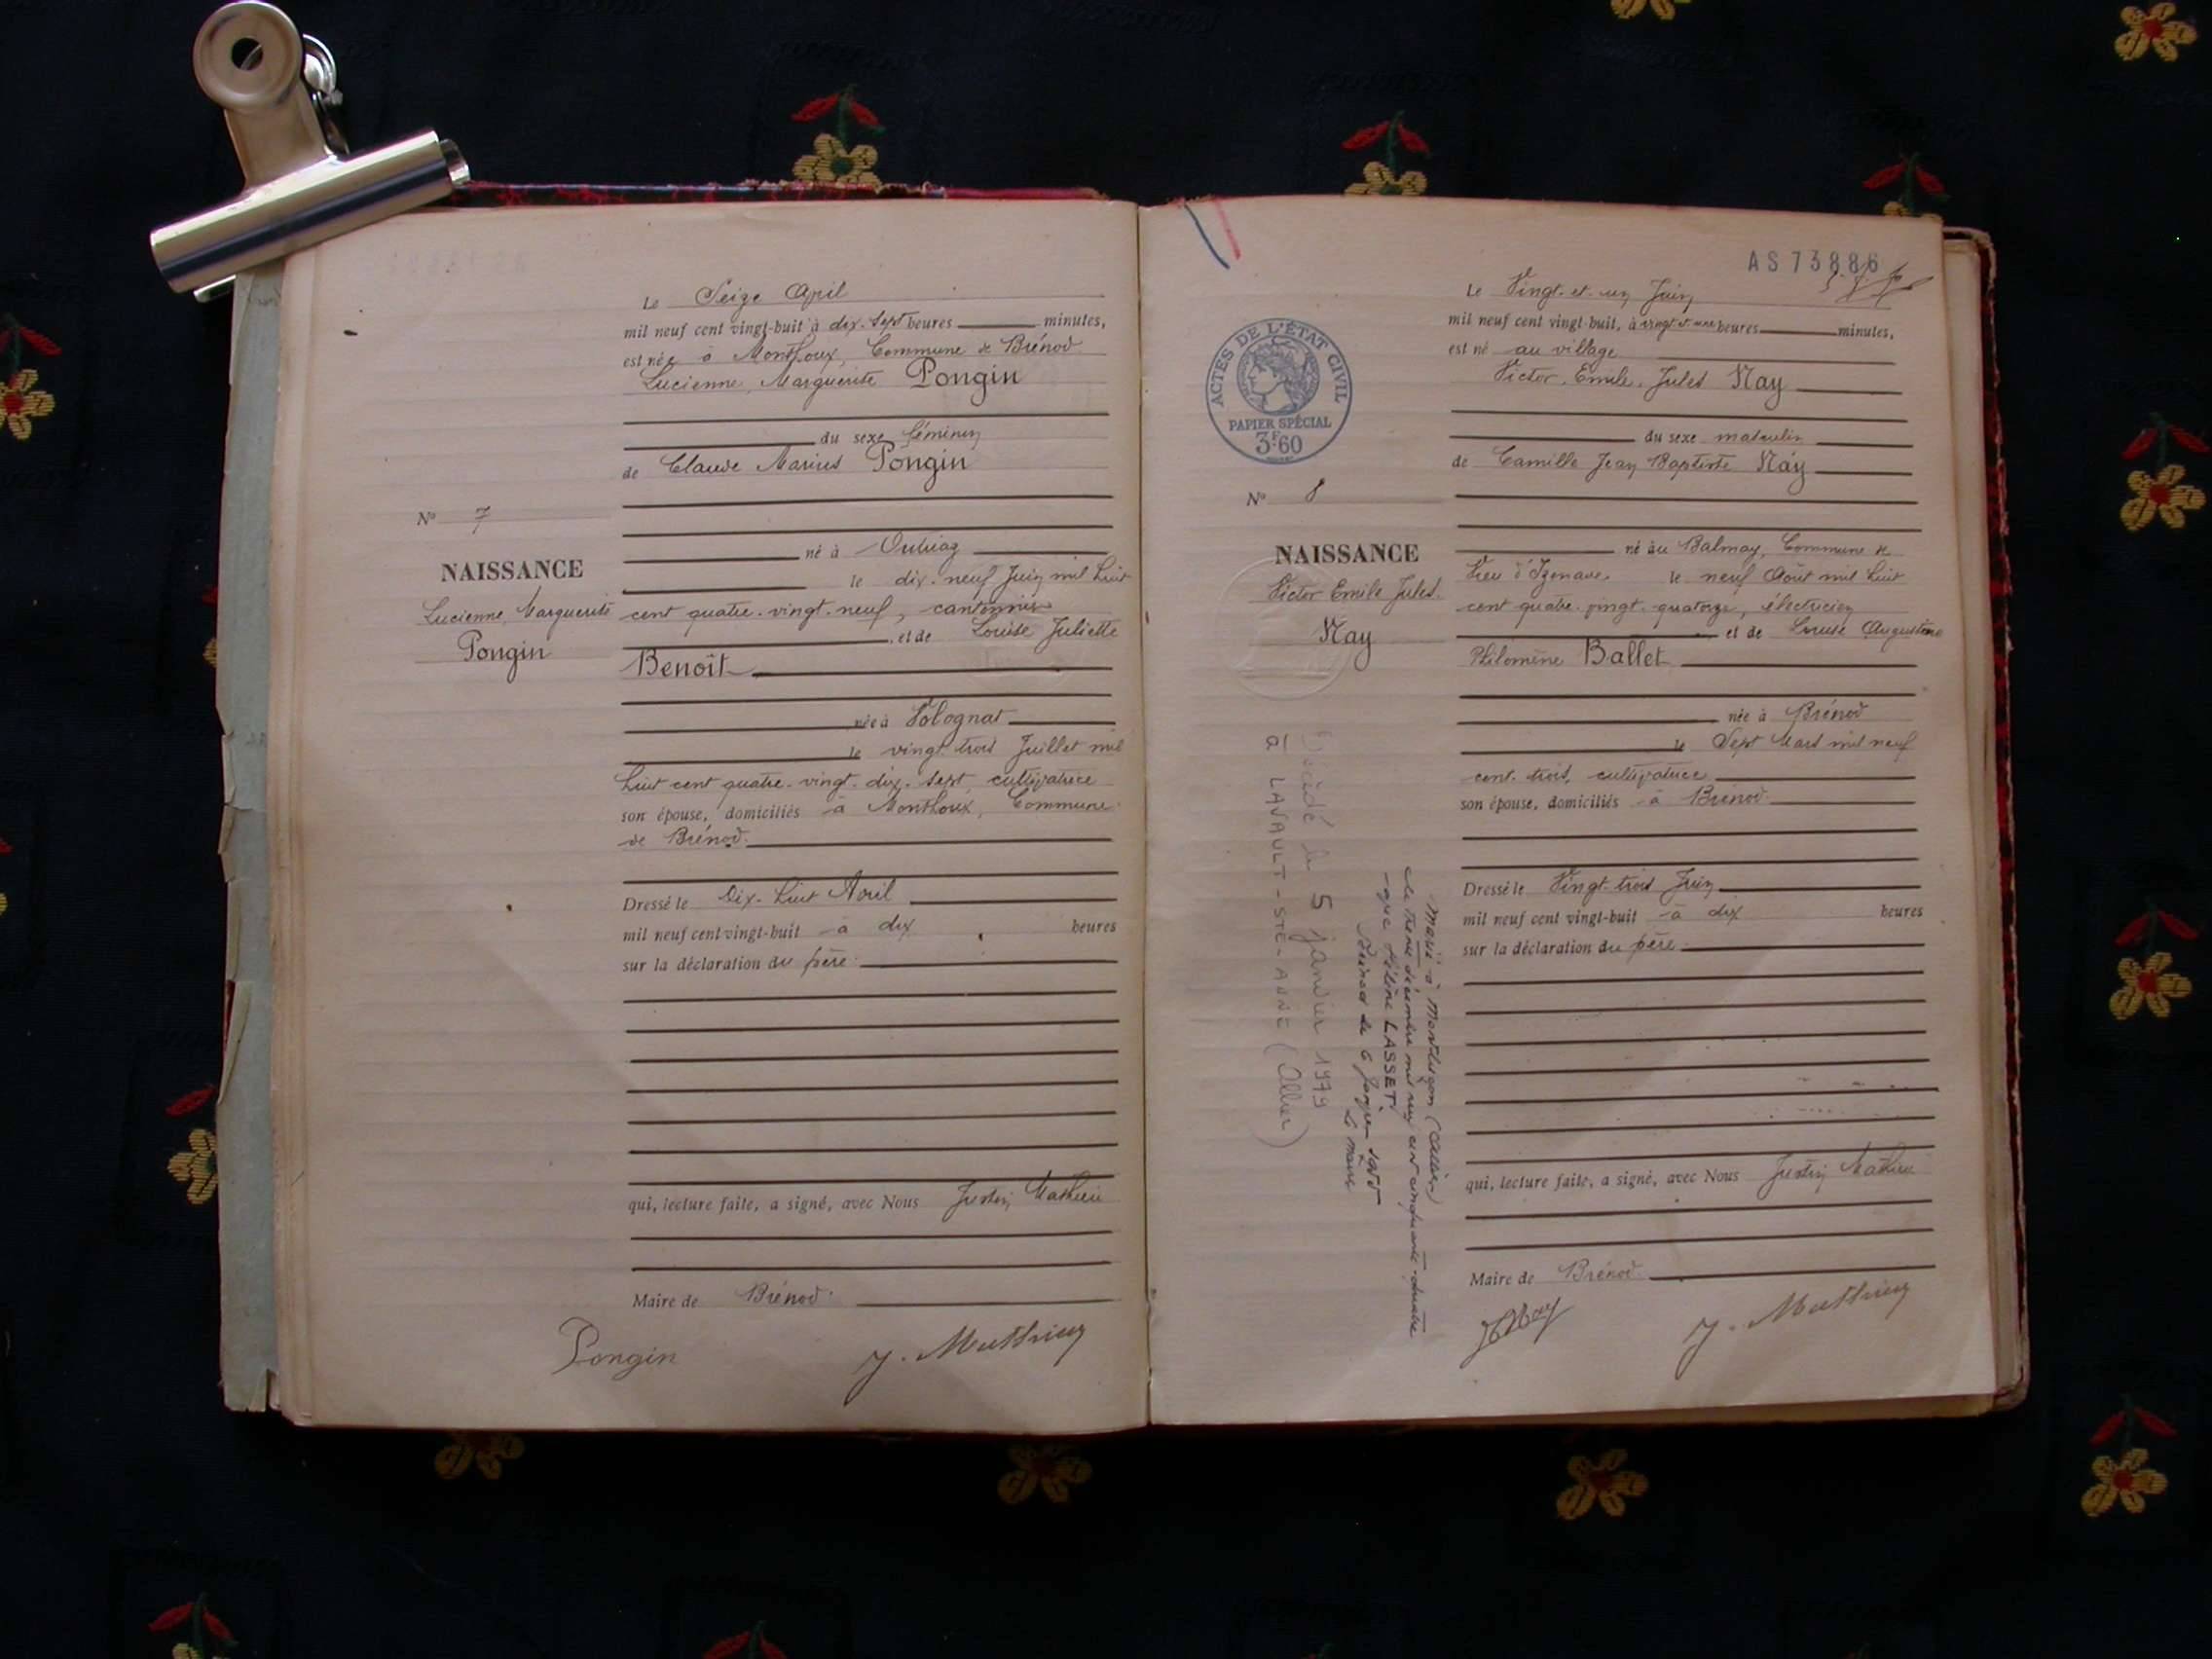 Le Seize Avril
mil neuf cent vingt-huit à dix-sept heures minutes,
est née à Monthoux, Commune de Brénod
Lucienne, Marguerite Pongin
du sexe féminin
de Claude Marius Pongin
né à Outriaz
le dix-neuf Juin mil huit
cent quatre-vingt-neuf, cantonnier
et de Louise Juliette
Benoît
née à Volognat
le vingt trois Juillet mil
huit cent quatre-vingt-dix-sept, cultivatrice
son épouse, domiciliés à Monthoux, Commune
de Brénod.
Dressé le Dix-huit Avril
mil neuf cent vingt-huit à dix heures
sur la déclaration du père.
qui, lecture faite, a signé, avec Nous Justin Mathieu
Maire de Brénod.
Pongin J. Matthieu
N° 7
NAISSANCE
Lucienne, Marguerite
Pongin
AS 73886
Le Vingt-et-un Juin
mil neuf cent vingt-huit, à vingt et une heures minutes,
est né au village
Victor, Emile, Jules Nay
du sexe masculin
de Camille Jean Baptiste Nay
né au Balmay, Commune de
Vieu d'Izenave, le neuf Août mil huit
cent quatre-vingt-quatorze, électricien
et de Louise Augustine
Philomène Ballet
née à Brénod
le Sept Mars mil neuf
cent trois, cultivatrice
son épouse, domiciliés à Brénod.
Dressé le Vingt-trois Juin
mil neuf cent vingt-huit à dix heures
sur la déclaration du père.
qui, lecture faite, a signé, avec Nous Justin Mathieu
Maire de Brénod.
Nay J. Matthieu
ACTES DE L'ÉTAT CIVIL
PAPIER SPÉCIAL
3F60
N° 8
NAISSANCE
Victor Emile Jules.
Nay
Marié à Montluçon (Allier)
le trente décembre mil neuf cent cinquante-quatre
avec Hélène LASSET.
Brénod le 6 Janvier 1955
Le Maire
Décédé le 5 janvier 1979
à LAVAULT-STE-ANNE (Allier)